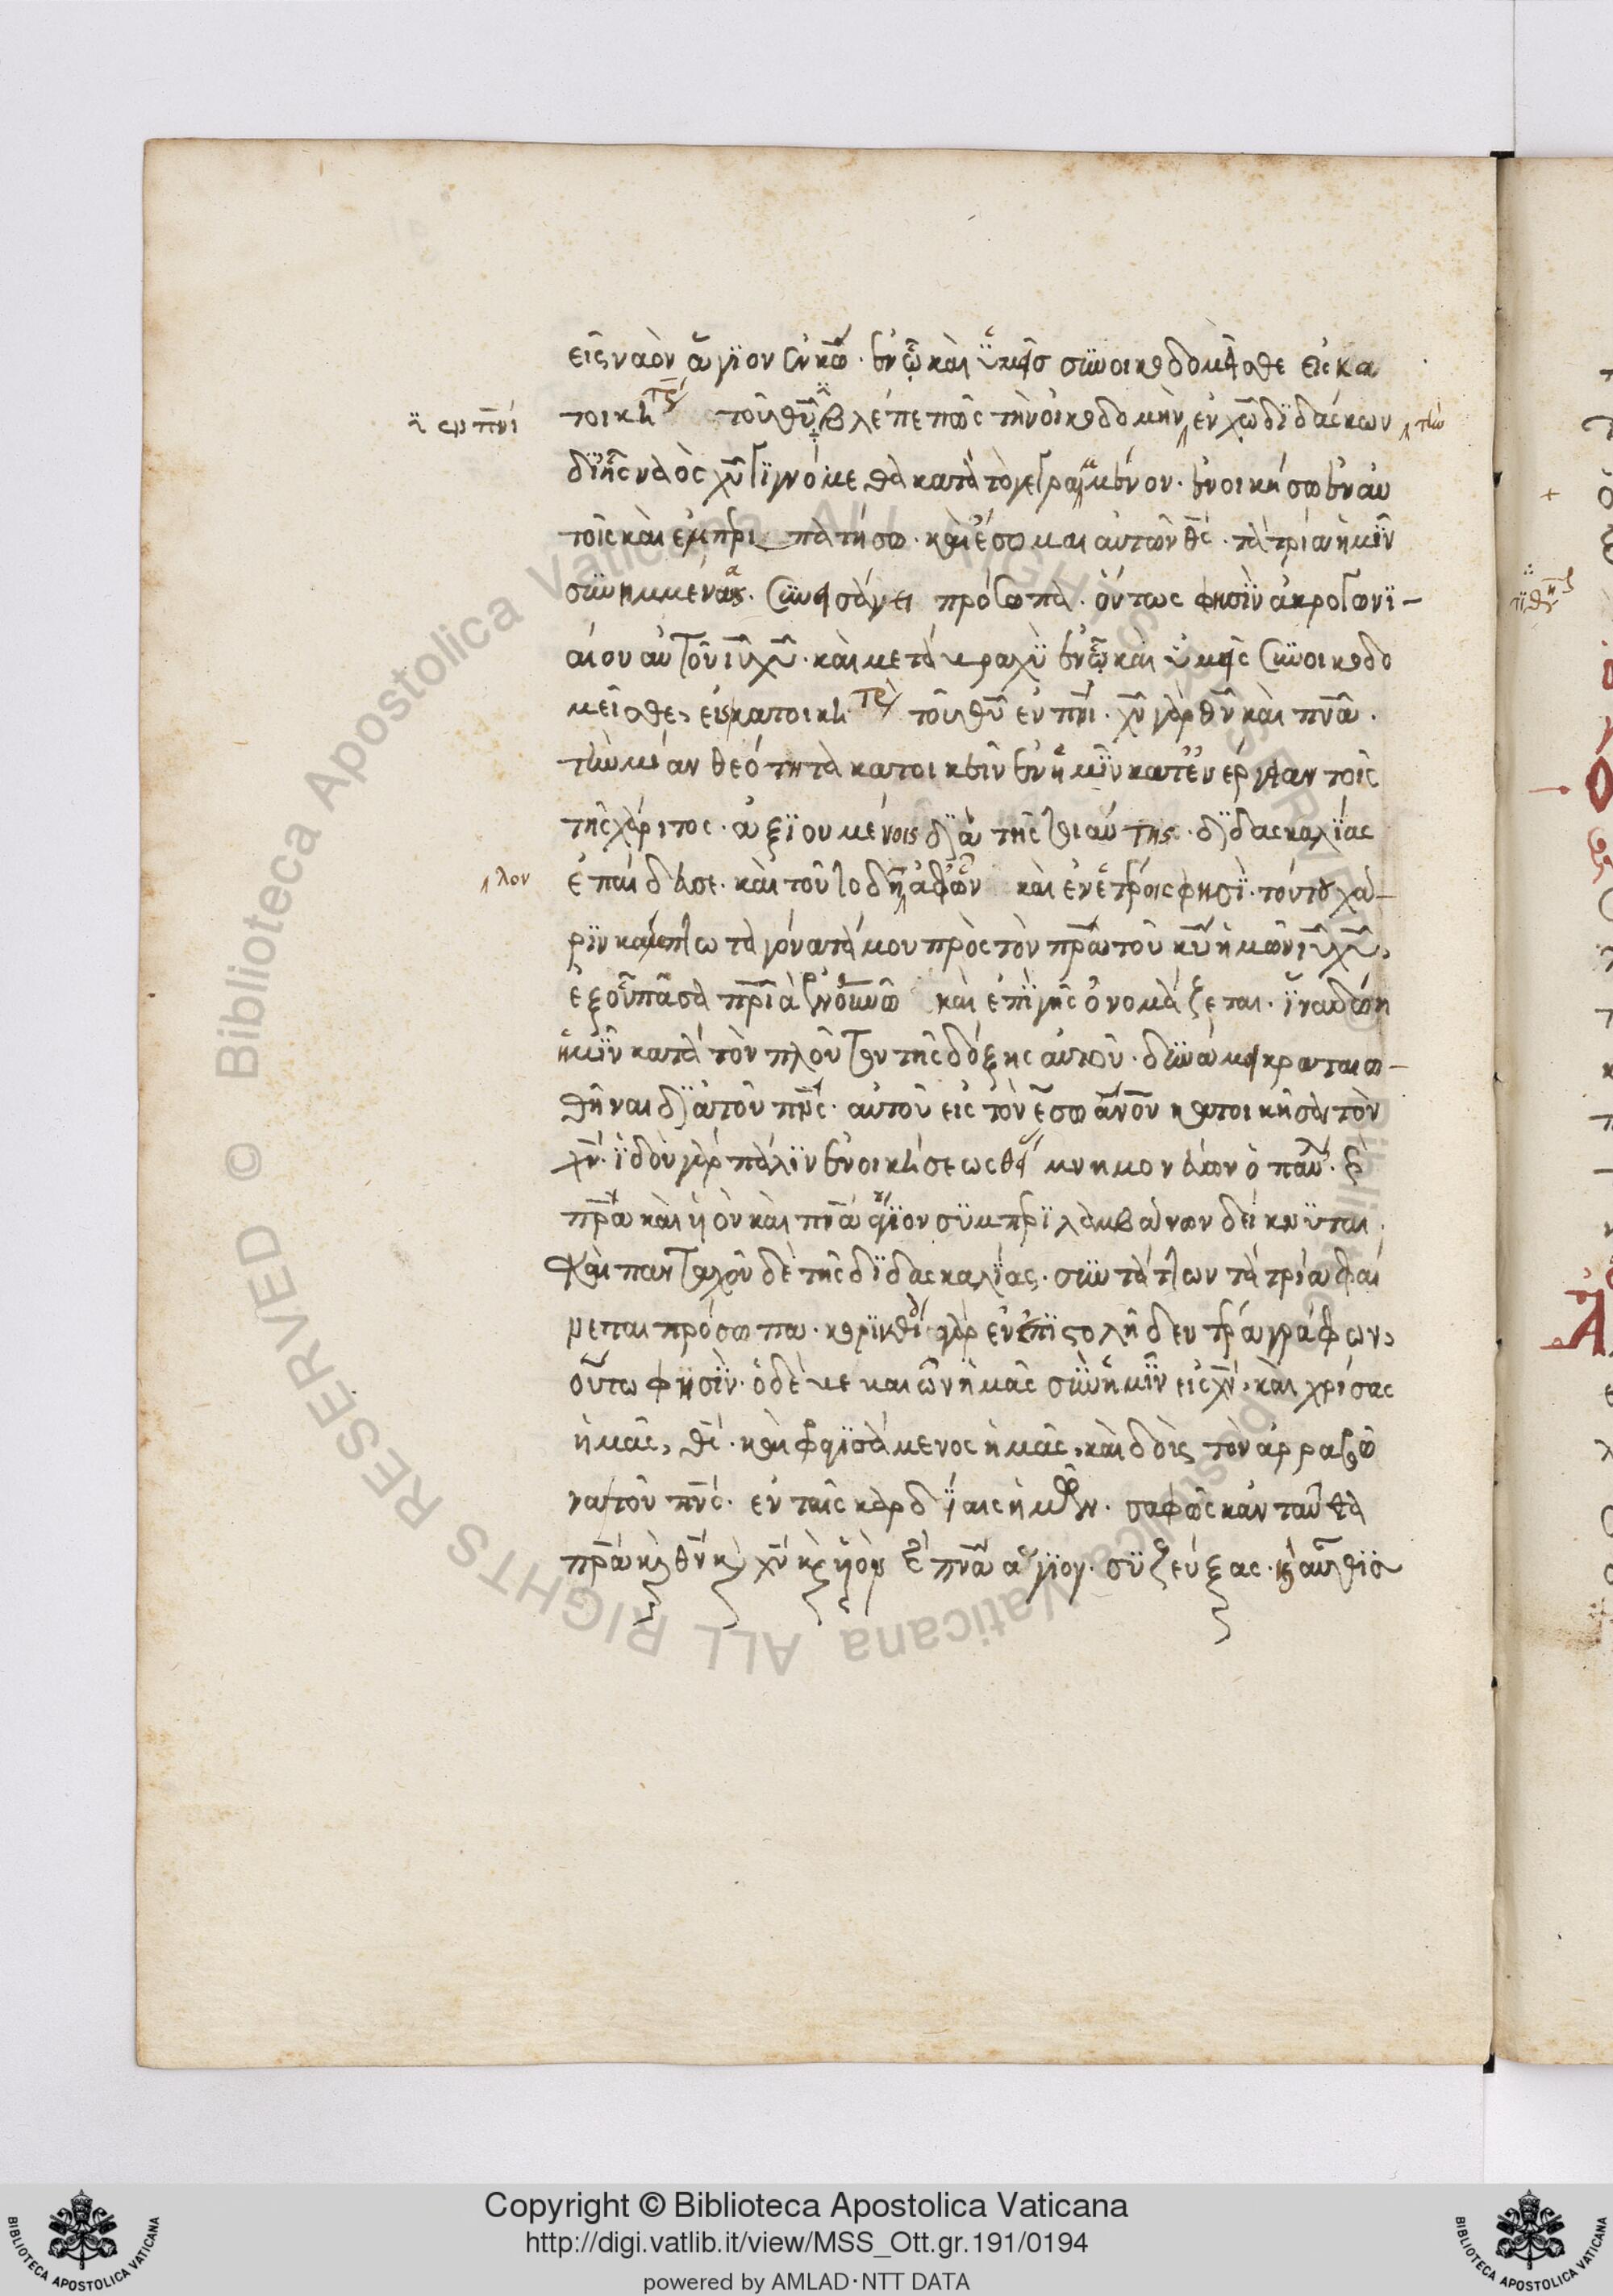 εἰς ναὸν ἅγιον ἐν κω̅. ἐν ᾧ καὶ ὑμεῖς συνοικοδομεῖσθε εἰς κα
τοικη τοῦ θυ̅ βλέπε πῶς τὴν οἰκοδομὴν ἐν χω̅ διδάσκων
ἐν πνι
τὴν
δι ἧς ναὸς χυ̅ γινόμεθα κατὰ τὸ γεγραμμένον. ἐνοικήσω ἐν αυ
τοῖς καὶ ἐμπερι πατήσω. καὶ ἔσομαι αὐτῶν θς̅. τὰ τρία ἡμῖν
συνημμένως. συνεισάγει πρόσωπα. οὕτως φησὶν ἀκρογωνι-
αίου αὐτοῦ ιυ̅ χυ̅. καὶ μετὰ βραχὺ ἐν ᾧ καὶ ὑμεῖς συνοικοδο
μεῖσθε, εἰς κατοικη τοῦ θυ̅ ἐν πνι̅. χν̅ γὰρ θν̅ καὶ πνα̅.
τὴν μίαν θεότητα κατοικεῖν ἐν ἡμῖν κατ' ἐνέργειαν τοῖς
τῆς χάριτος. ἀξιουμένοις διὰ τῆς τοιαύτης. διδασκαλίας
λον
ἐπαίδευσε. καὶ τοῦτο δῆ ἀφ' ὧν καὶ ἐν ἑτέροις φησί. τούτου χά-
ριν κάμπτω τὰ γόνατά μου πρὸς τὸν πρα̅ τοῦ κυ̅ ἡμῶν ιυ̅ χυ̅,
ἐξ οὗ πᾶσα πρι̅ὰ ἐν οὐνω̅ καὶ ἐπὶ γῆς ὀνομάζεται. ἵνα δώη
ἡμῖν κατὰ τὸν πλοῦτον τῆς δόξης αὐτοῦ. δυνάμει κραταιω-
θῆναι διὰ τοῦ πνς̅. αὐτοῦ εἰς τὸν ἔσω ανο̅ν κατοικῆσαι τὸν
χν̅. ἰδοὺ γὰρ πάλιν ἐνοικήσεως θεί μνημονεύων ὁ παυ̅.
πρα̅ καὶ υἱὸν καὶ πνα̅ ἅγιον συμπεριλαμβάνων δείκνυται.
καὶ πανταχοῦ δὲ τῆς διδασκαλίας. συντάττων τὰ τρία φαί
νεται πρόσωπα. κορινθί γὰρ ἐν ἐπιστολῇ δευτέρα γράφων,
οὕτω φησίν. ὁ δὲ βεβαιῶν ἡμᾶς σὺν ἡμῖν εἰς χν̅, καὶ χρίσας
ἡμᾶς, θς̅. καὶ σφραγισάμενος ἡμᾶς, καὶ δοὺς τὸν ἀρραβῶ
να τοῦ πνς̅. ἐν ταῖς καρδίαις ἡμῶν. σαφῶς κἀνταῦθα
πρα̅ κ θν̅ κ χν̅ κ υἱὸν πνα̅ ἅγιον. συζεύξας. κ αὖθις
Copyright © Biblioteca Apostolica Vaticana
http://digi.vatlib.it/view/MSS_Ott.gr.191/0194
powered by AMLAD·NTT DATA